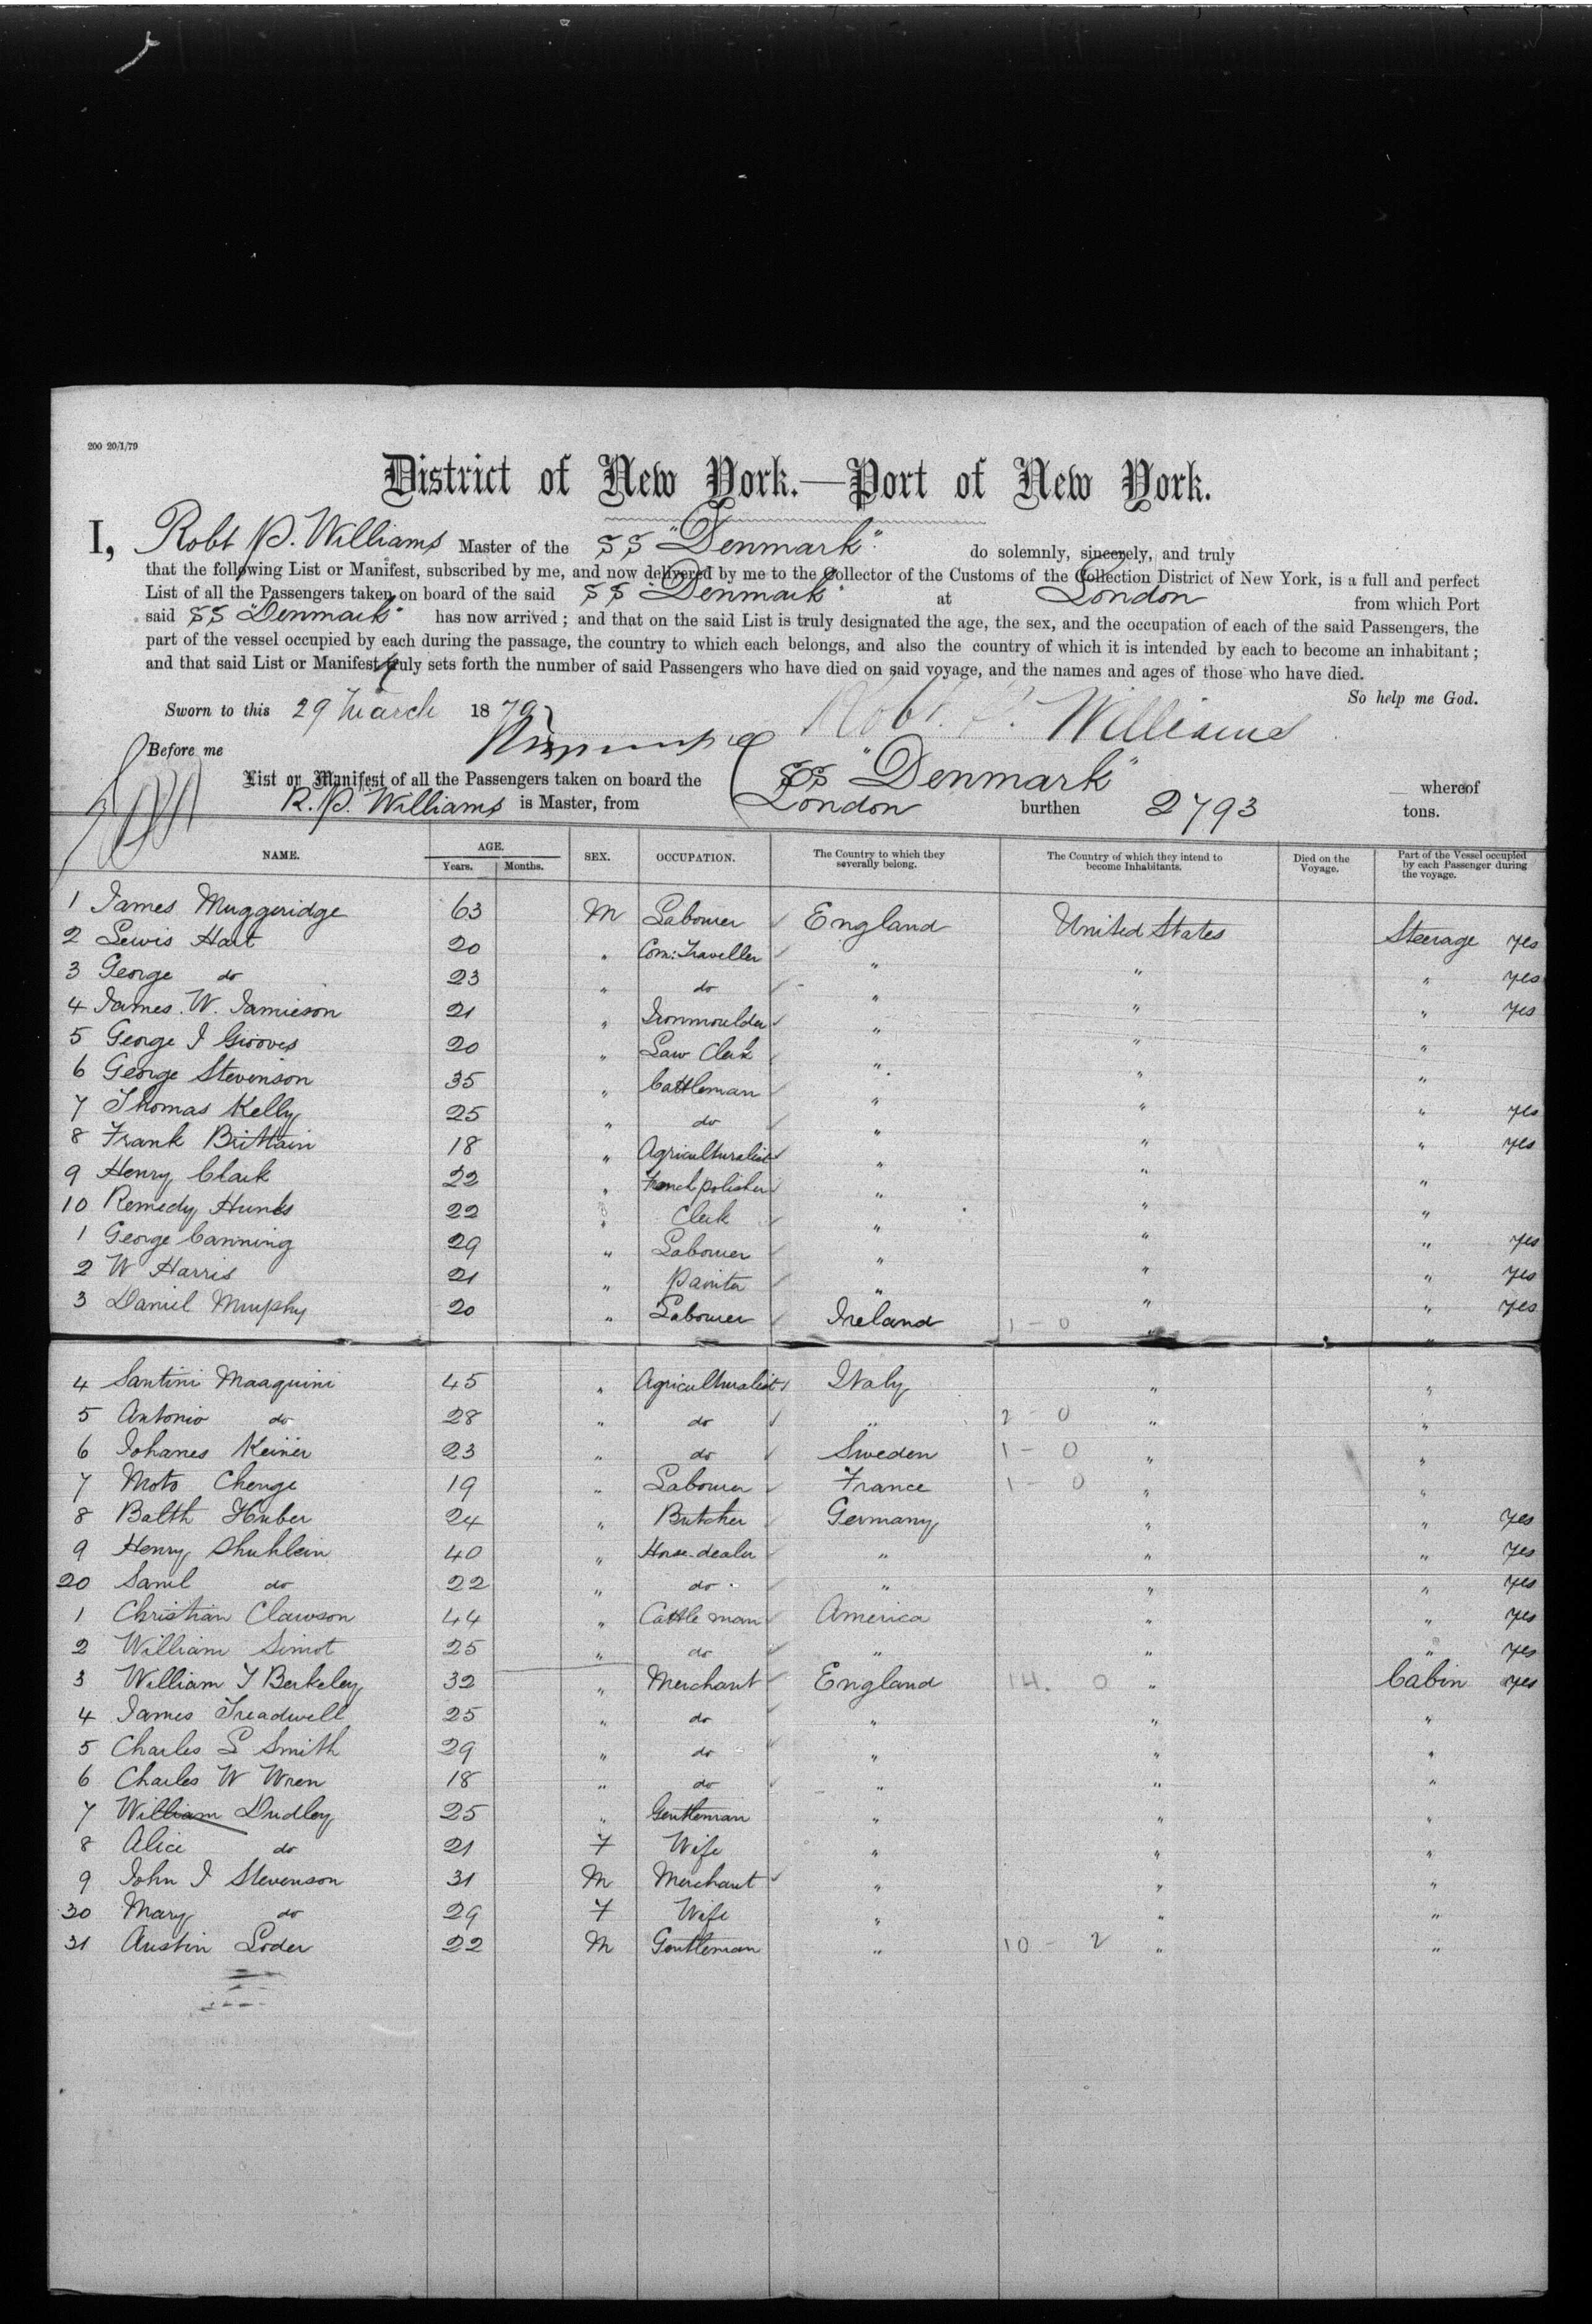 200 20/1/79
District of New York.—Port of New York.
I, Robt P. Williams Master of the SS "Denmark" do solemnly, sincerely, and truly
that the following List or Manifest, subscribed by me, and now delivered by me to the Collector of the Customs of the Collection District of New York, is a full and perfect
List of all the Passengers taken on board of the said SS "Denmark" at London from which Port
said SS "Denmark" has now arrived; and that on the said List is truly designated the age, the sex, and the occupation of each of the said Passengers, the
part of the vessel occupied by each during the passage, the country to which each belongs, and also the country of which it is intended by each to become an inhabitant;
and that said List or Manifest truly sets forth the number of said Passengers who have died on said voyage, and the names and ages of those who have died.
So help me God.
Sworn to this 29 March 1879 Robt. P. Williams
Before me
List or Manifest of all the Passengers taken on board the SS "Denmark" whereof
R. P. Williams is Master, from London burthen 2793 tons.
NAME. AGE. Years. Months. SEX. OCCUPATION. The Country to which they severally belong. The Country of which they intend to become Inhabitants. Died on the Voyage. Part of the Vessel occupied by each Passenger during the voyage.
1 James Muggeridge 63 M Labourer England United States Steerage yes
2 Lewis Hart 20 " Com: Traveller " " " yes
3 George do 23 " do " " " yes
4 James. W. Jamieson 21 " Ironmoulder " " "
5 George J Grooves 20 " Law Clerk " " "
6 George Stevenson 35 " Cattleman " " " yes
7 Thomas Kelly 25 " do " " " yes
8 Frank Brittain 18 " Agriculturalist " " "
9 Henry Clark 22 " French polisher " " "
10 Remedy Hunts 22 " Clerk " " " yes
1 George Canning 29 " Labourer " " " yes
2 W Harris 21 " Painter " " " yes
3 Daniel Murphy 20 " Labourer Ireland 1 - 0 " "
4 Santini Maaquini 45 " Agriculturalist Italy " "
5 Antonio do 28 " do " 2 - 0 " "
6 Johanes Keiner 23 " do Sweden 1 - 0 " "
7 Moto Chenge 19 " Labourer France 1 - 0 " "
8 Balth Huber 24 " Butcher Germany " " yes
9 Henry Shuhlein 40 " Horse-dealer " " " yes
20 Saml do 22 " do " " " yes
1 Christian Clawson 44 " Cattle man America " " yes
2 William Simot 25 " do " " " yes
3 William T Berkeley 32 " Merchant England 14. 0 " Cabin yes
4 James Treadwell 25 " do " " "
5 Charles S Smith 29 " do " " "
6 Charles W Wren 18 " do " " "
7 William Dudley 25 " Gentleman " " "
8 Alice do 21 F Wife " " "
9 John J Stevenson 31 M Merchant " " "
30 Mary do 29 F Wife " " "
31 Austin Loder 22 M Gentleman " 10 - 2 " "